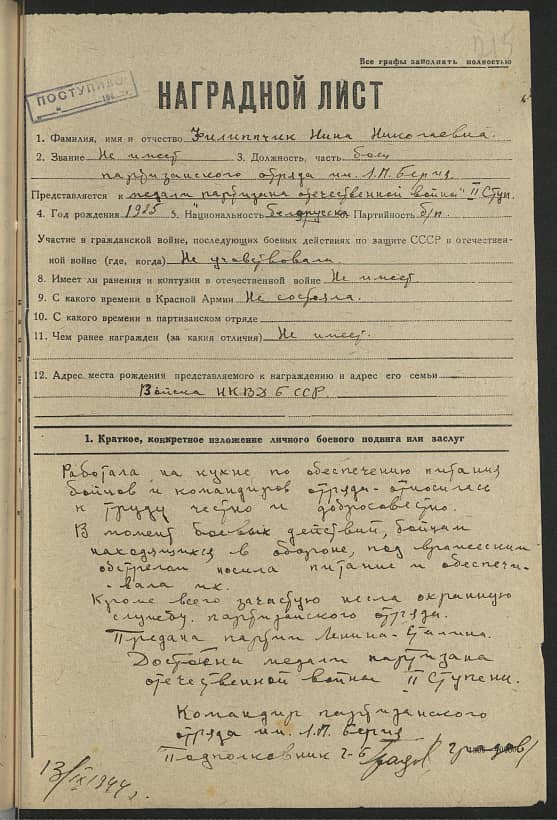 215
Все графы заполнять полностью
ПОСТУПИЛО
НАГРАДНОЙ ЛИСТ
1. Фамилия, имя и отчество Филиппчик Нина Николаевна.
2. Звание Не имеет 3. Должность, часть боец
партизанского отряда им. Л.П. Берия
Представляется к медали партизана отечественной войны II Ступ.
4. Год рождения 1925 5. Национальность белоруска Партийность б/п.
Участие в гражданской войне, последующих боевых действиях по защите СССР в отечествен-
ной войне (где, когда) Не участвовала.
8. Имеет ли ранения и контузии в отечественной войне Не имеет.
9. С какого времени в Красной Армии Не состояла.
10. С какого времени в партизанском отряде
11. Чем ранее награжден (за какия отличия) Не имеет.
12. Адрес места рождения представляемого к награждению и адрес его семьи
Войска НКВД БССР.
1. Краткое, конкретное изложение личного боевого подвига или заслуг
Работала на кухне по обеспечению питания
бойцов и командиров отряда - относилась
к труду честно и добросовестно.
В момент боевых действий, бойцам
находящихся в обороне, под вражеским
обстрелом носила питание и обеспечи-
вала их.
Кроме всего зачастую несла охранную
службу партизанского отряда.
Предана партии Ленина - Сталина.
Достойна медали партизана
отечественной войны II Ступени.
Командир партизанского
отряда им. Л.П. Берия
Подполковник г-б Градов /Градов/
13/IX 1944 г.